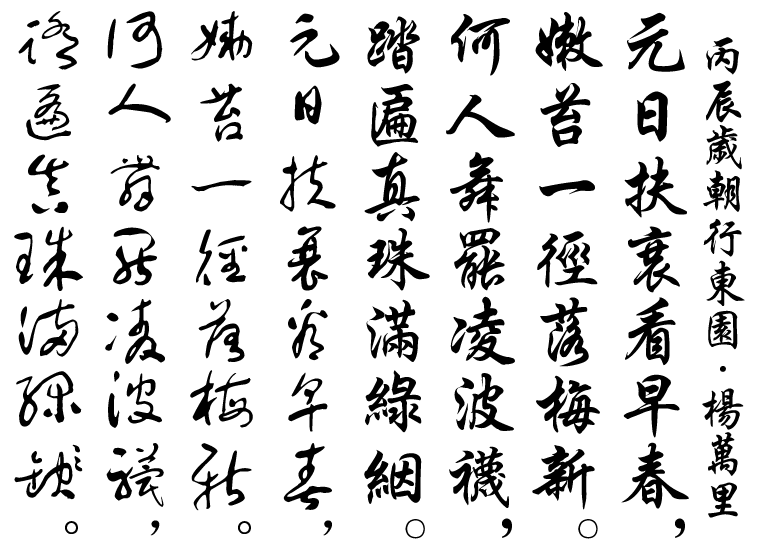 丙辰歲朝行東園・楊萬里
元日扶衰看早春，
嫩苔一徑落梅新。
何人舞罷凌波襪，
踏遍真珠滿綠絪。
元日扶衰看早春，
嫩苔一徑落梅新。
何人舞罷凌波襪，
踏遍真珠滿綠絪。